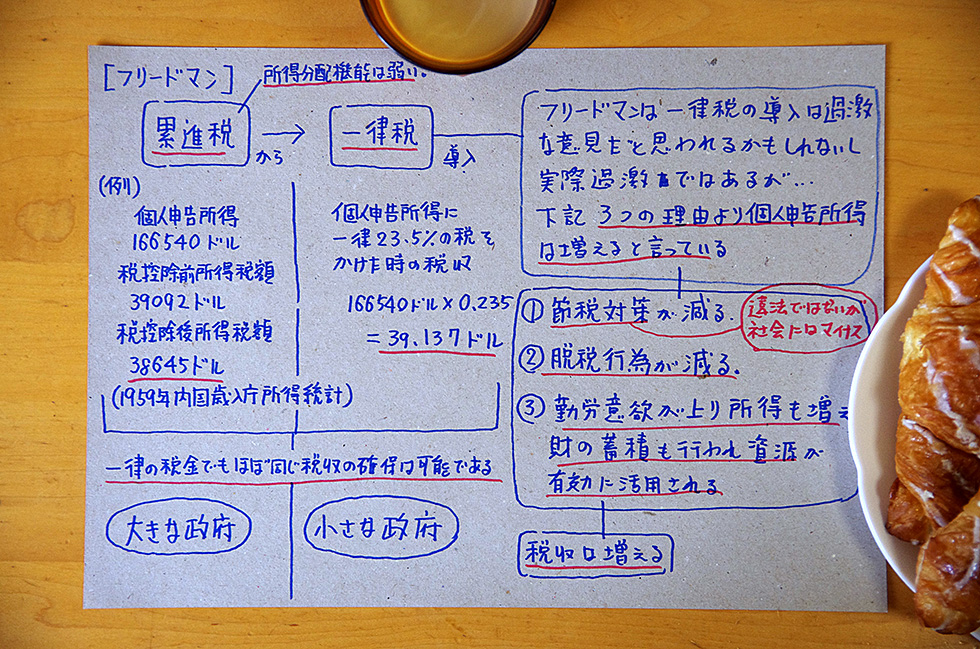 [フリードマン]
所得分配機能は弱い。
累進税
から
→
一律税
導入
(例)
個人申告所得
166540ドル
税控除前所得税額
39092ドル
税控除後所得税額
38645ドル
(1959年内国歳入庁所得統計)
個人申告所得に
一律23.5%の税を
かけた時の税収
166540ドル×0.235
=39,137ドル
一律の税金でもほぼ同じ税収の確保は可能である
大きな政府
小さな政府
フリードマンは一律税の導入は過激
な意見だと思われるかもしれないし
実際過激ではあるが…
下記3つの理由より個人申告所得
は増えると言っている
①節税対策が減る。
違法ではないが
社会にはマイナス
②脱税行為が減る。
③勤労意欲が上り所得も増え
財の蓄積も行われ資源が
有効に活用される
税収は増える